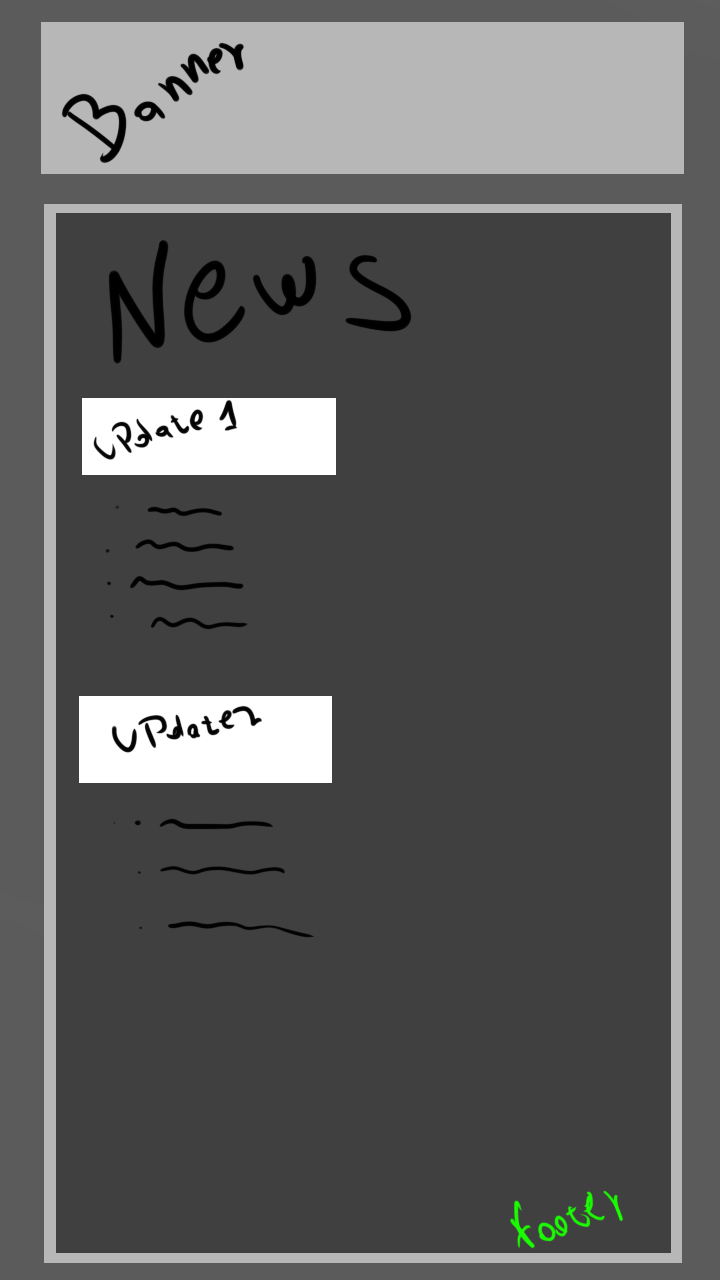 Banner
News
UPdate 1
UPdate2
footer